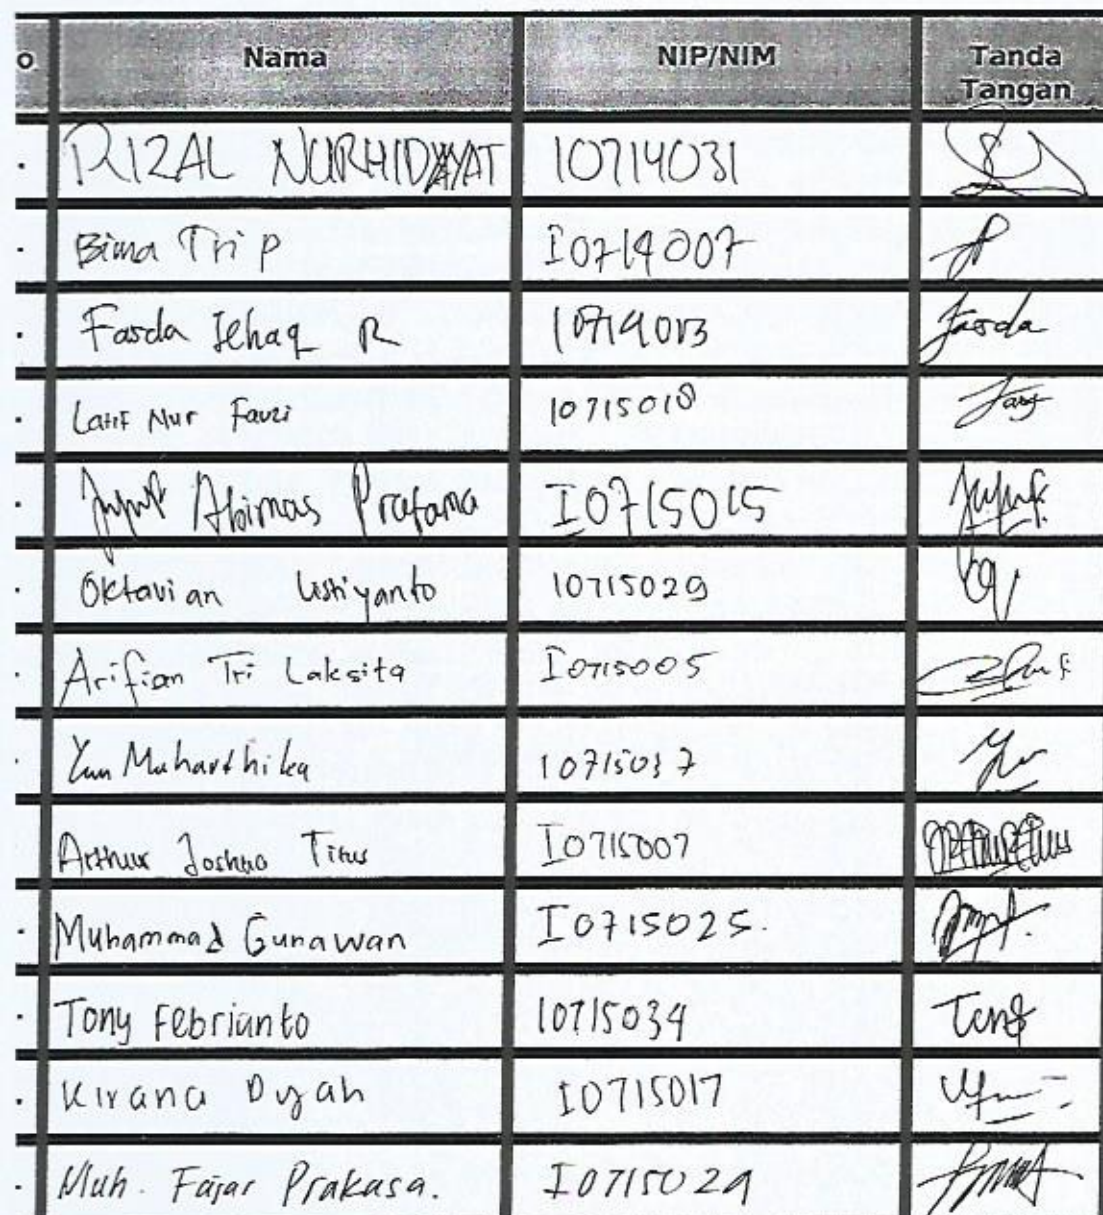 o Nama NIP/NIM Tanda
Tangan
. RIZAL NURHIDAYAT I0714031
. Bima Tri P I0714007
. Fasda Ishaq R I0714013 Fasda
. Latif Nur Fauzi I0715018
. Abimas Pratama I0715015
. Oktavian Listiyanto I0715029
. Arifian Tri Laksita I0715005
. Yun Muharthika I0715037
. Arthur Joshua Titus I0715007
. Muhammad Gunawan I0715025.
. Tony Febrianto I0715034
. Kirana Dyah I0715017
. Muh. Fajar Prakasa. I0715024